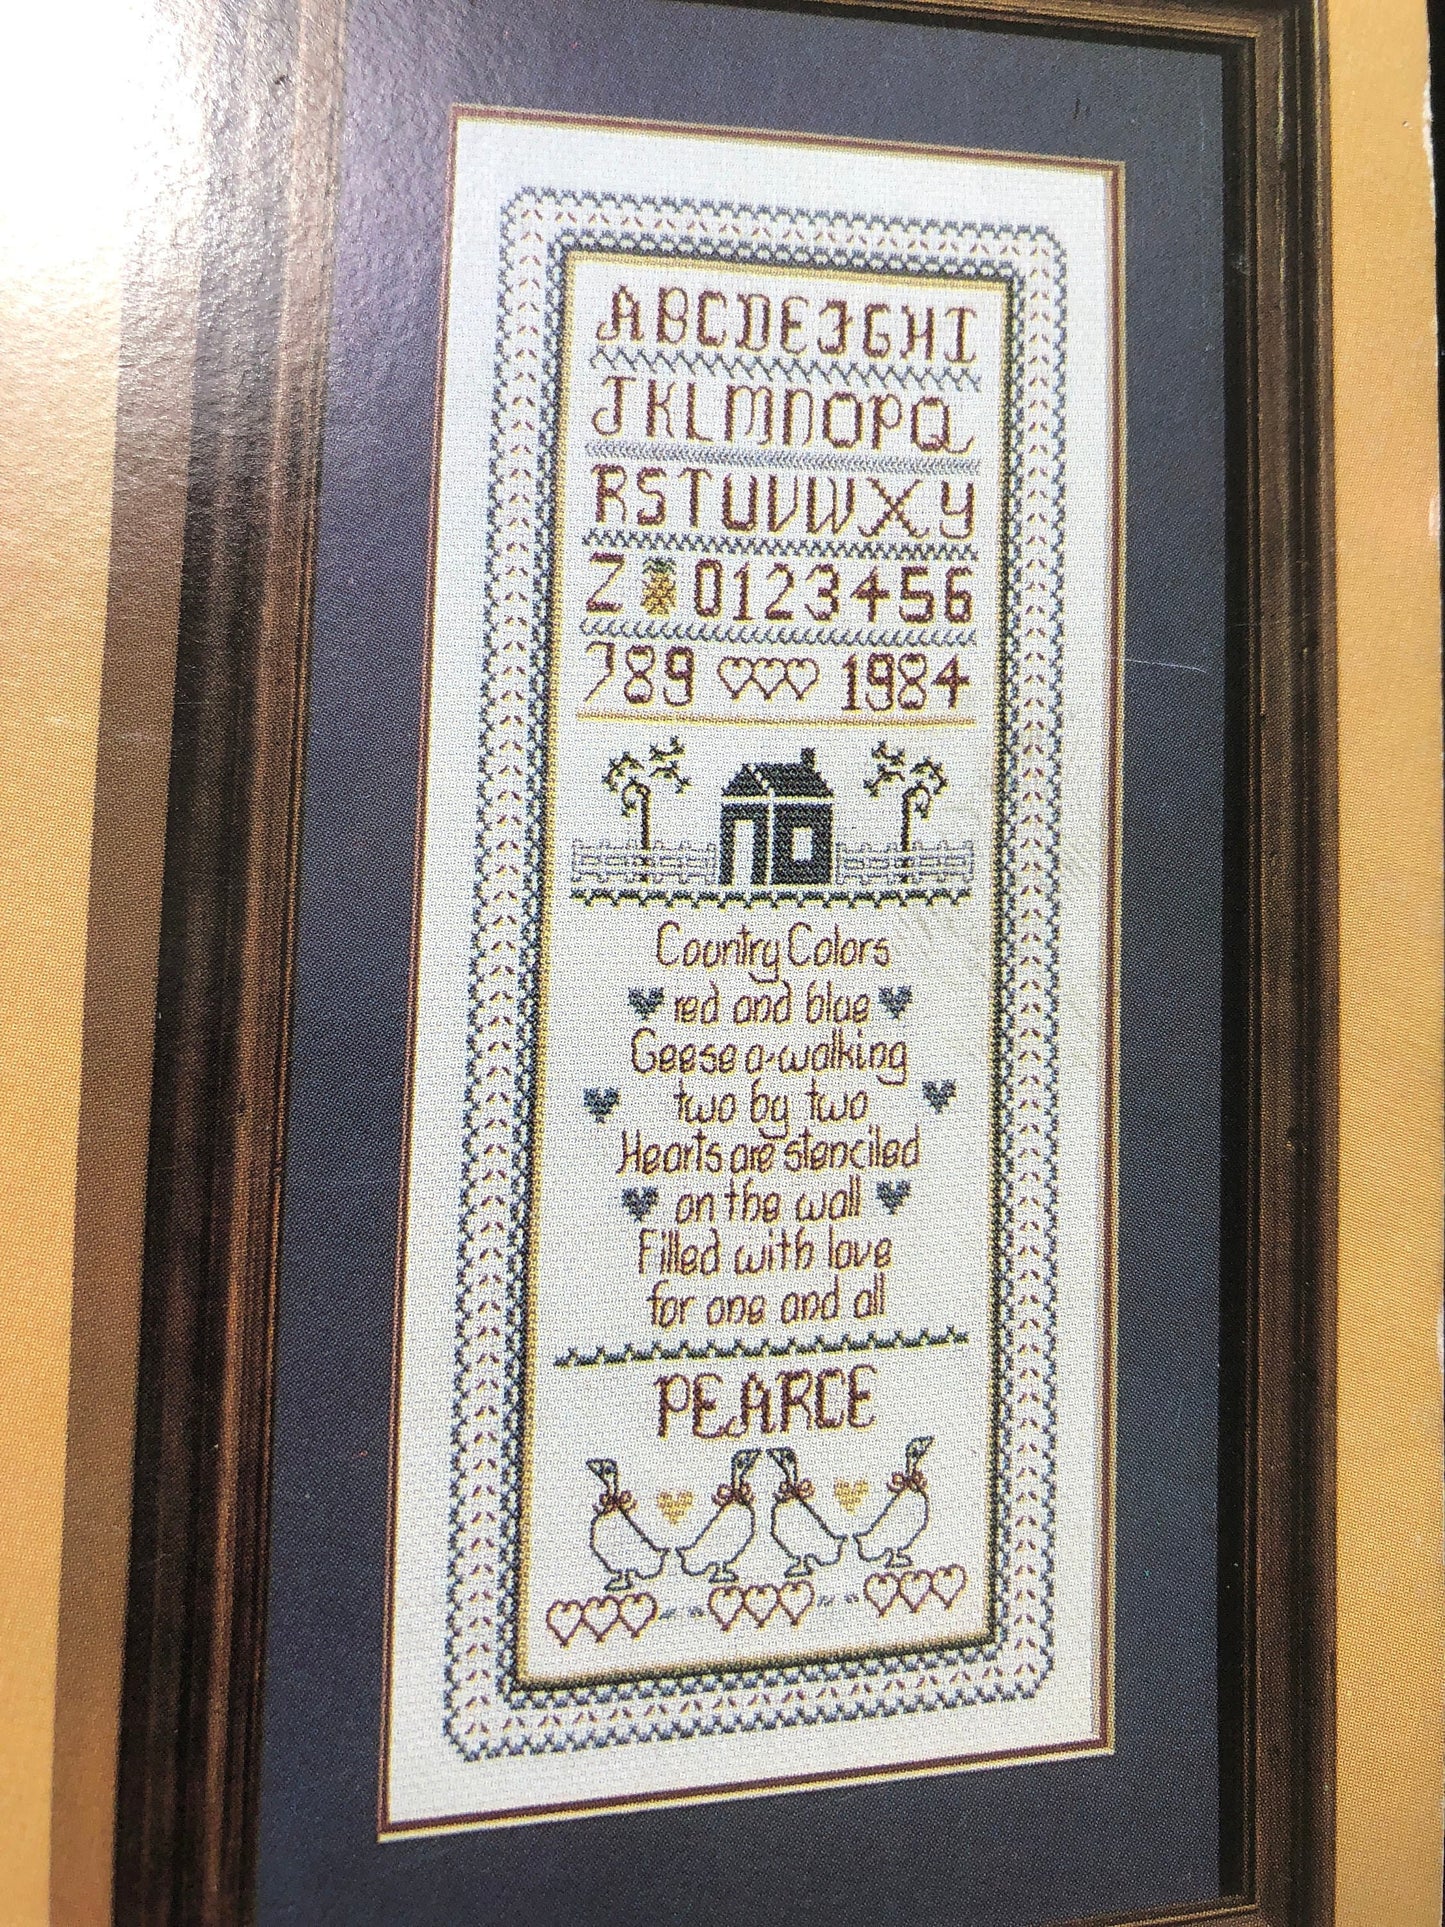 ABCDEFGHI
JKLMNOPQ
RSTUVWXY
Z 0123456
789 1984
Country Colors
red and blue
Geese a-walking
two by two
Hearts are stenciled
on the wall
Filled with love
for one and all
PEARCE